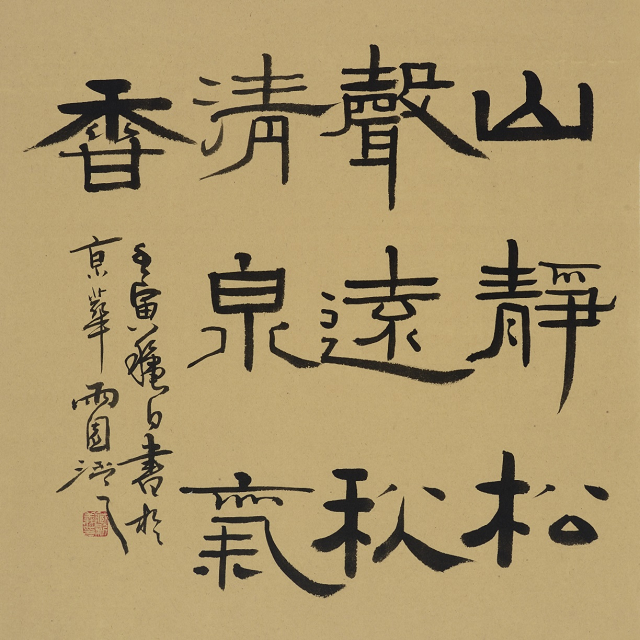 山靜松
聲遠秋
清泉氣
香
壬寅龝日書於
京華雨園